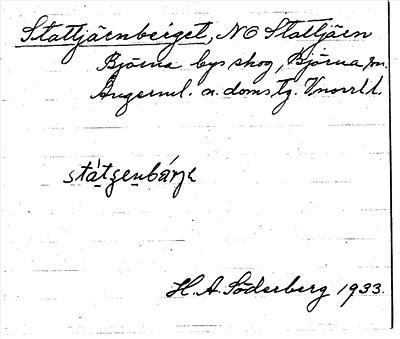 Stattjärnberget, NO Stattjärn
Björna bys skog, Björna sn.
Ångerml. a. doms. tg. Vnorrl. l.
státȷenbárjé
H. A. Söderberg 1933.